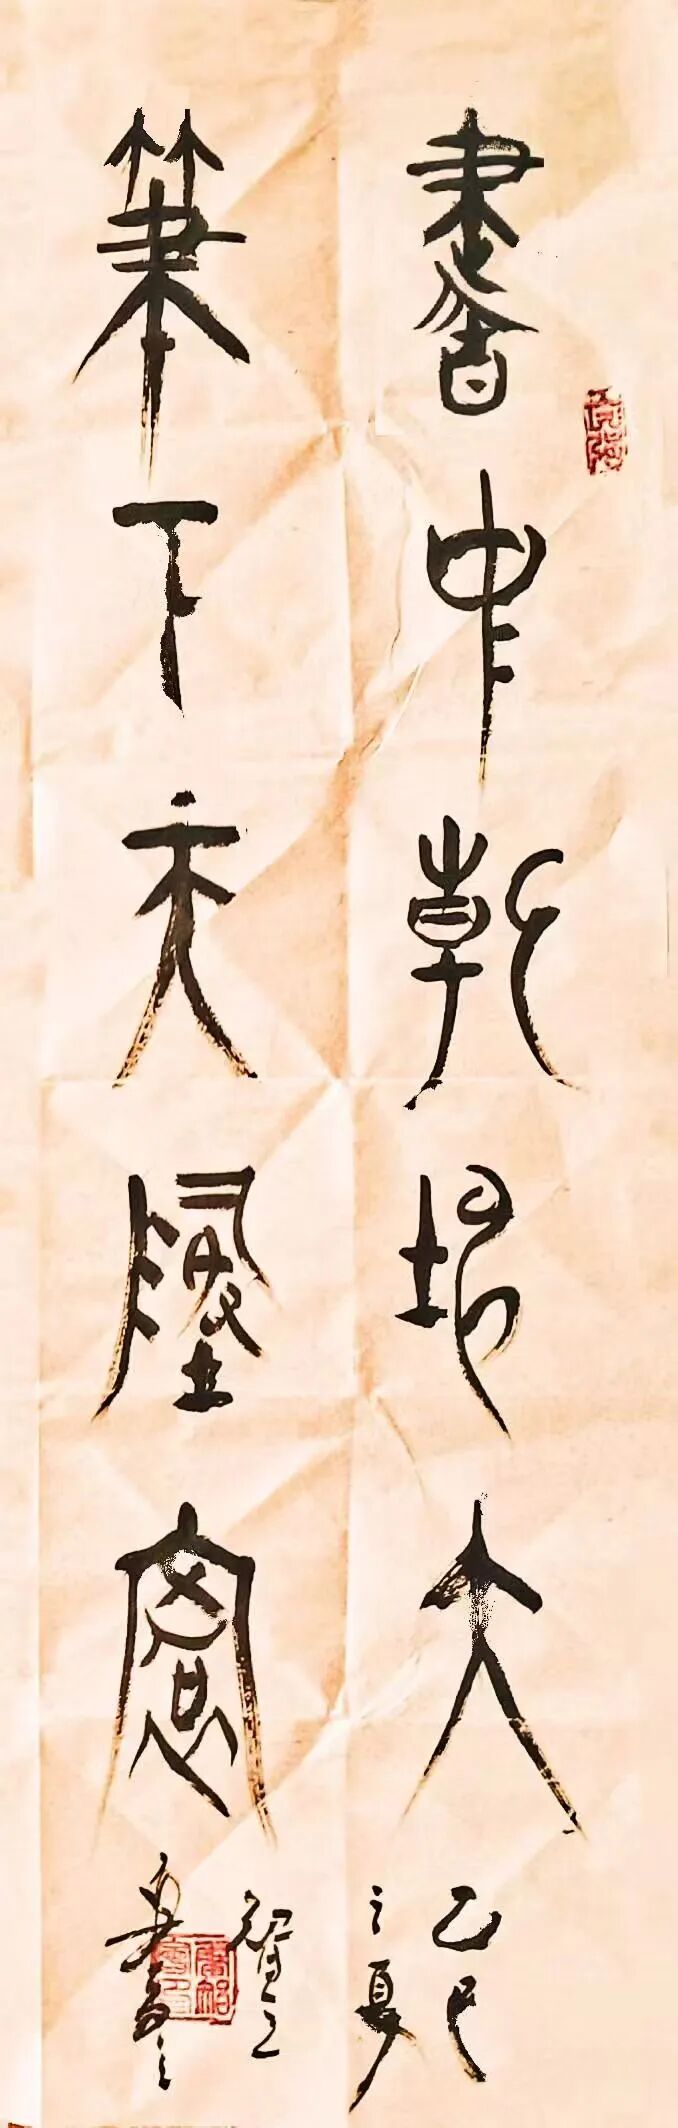 書中乾坤大
筆下天地寬
乙巳
之夏